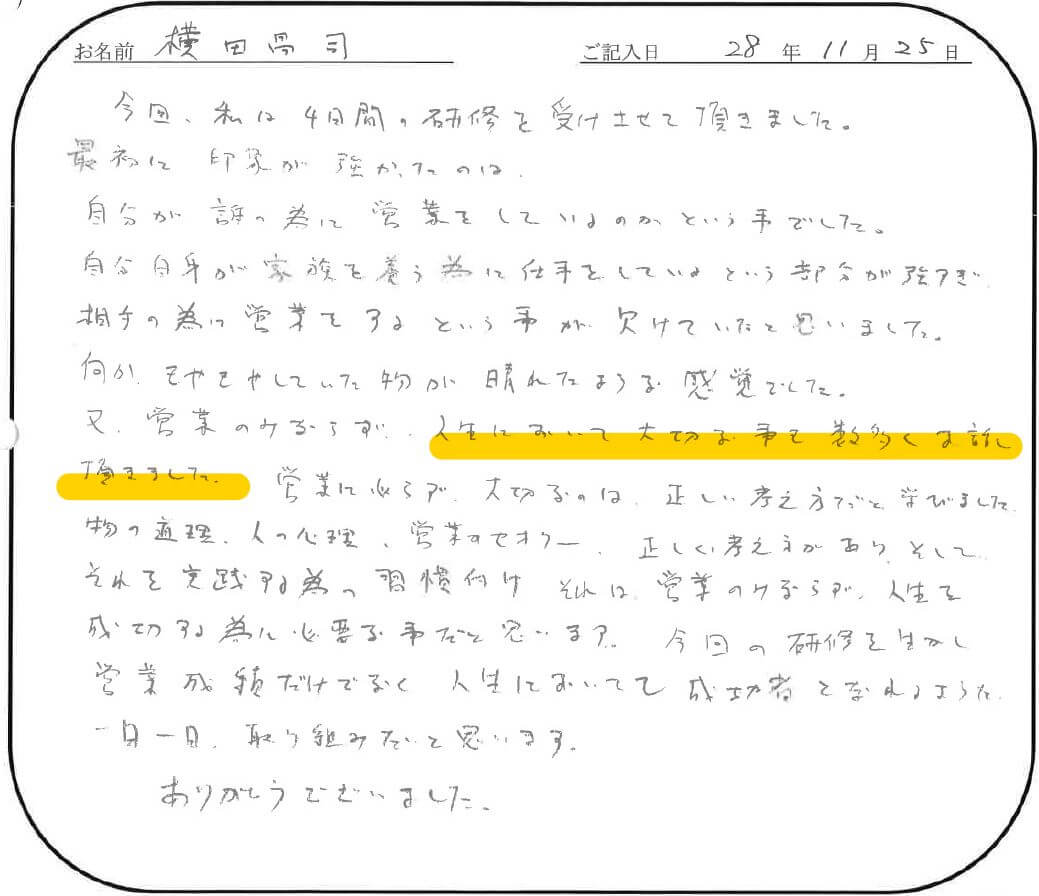 お名前 横田昌司 ご記入日 28年11月25日
今回、私は4日間の研修を受けさせて頂きました。
最初に印象が強かったのは、
自分が誰の為に営業をしているのかという事でした。
自分自身が家族を養う為に仕事をしているという部分が強すぎ、
相手の為に営業をするという事が欠けていたと思いました。
何か、もやもやしていた物が晴れたような感覚でした。
又、営業のみならず、人生において大切な事も数多くお話し
頂きました。営業に必らず、大切なのは、正しい考え方だと学びました。
物の道理、人の心理、営業のセオリー、正しく考え方があり、そして
それを実践する為の習慣付け それは、営業のみならず、人生を
成功する為に必要な事だと思います。今回の研修を生かし
営業成績だけでなく人生においても成功者となれるような
一日一日、取り組みたいと思います。
ありがとうございました。